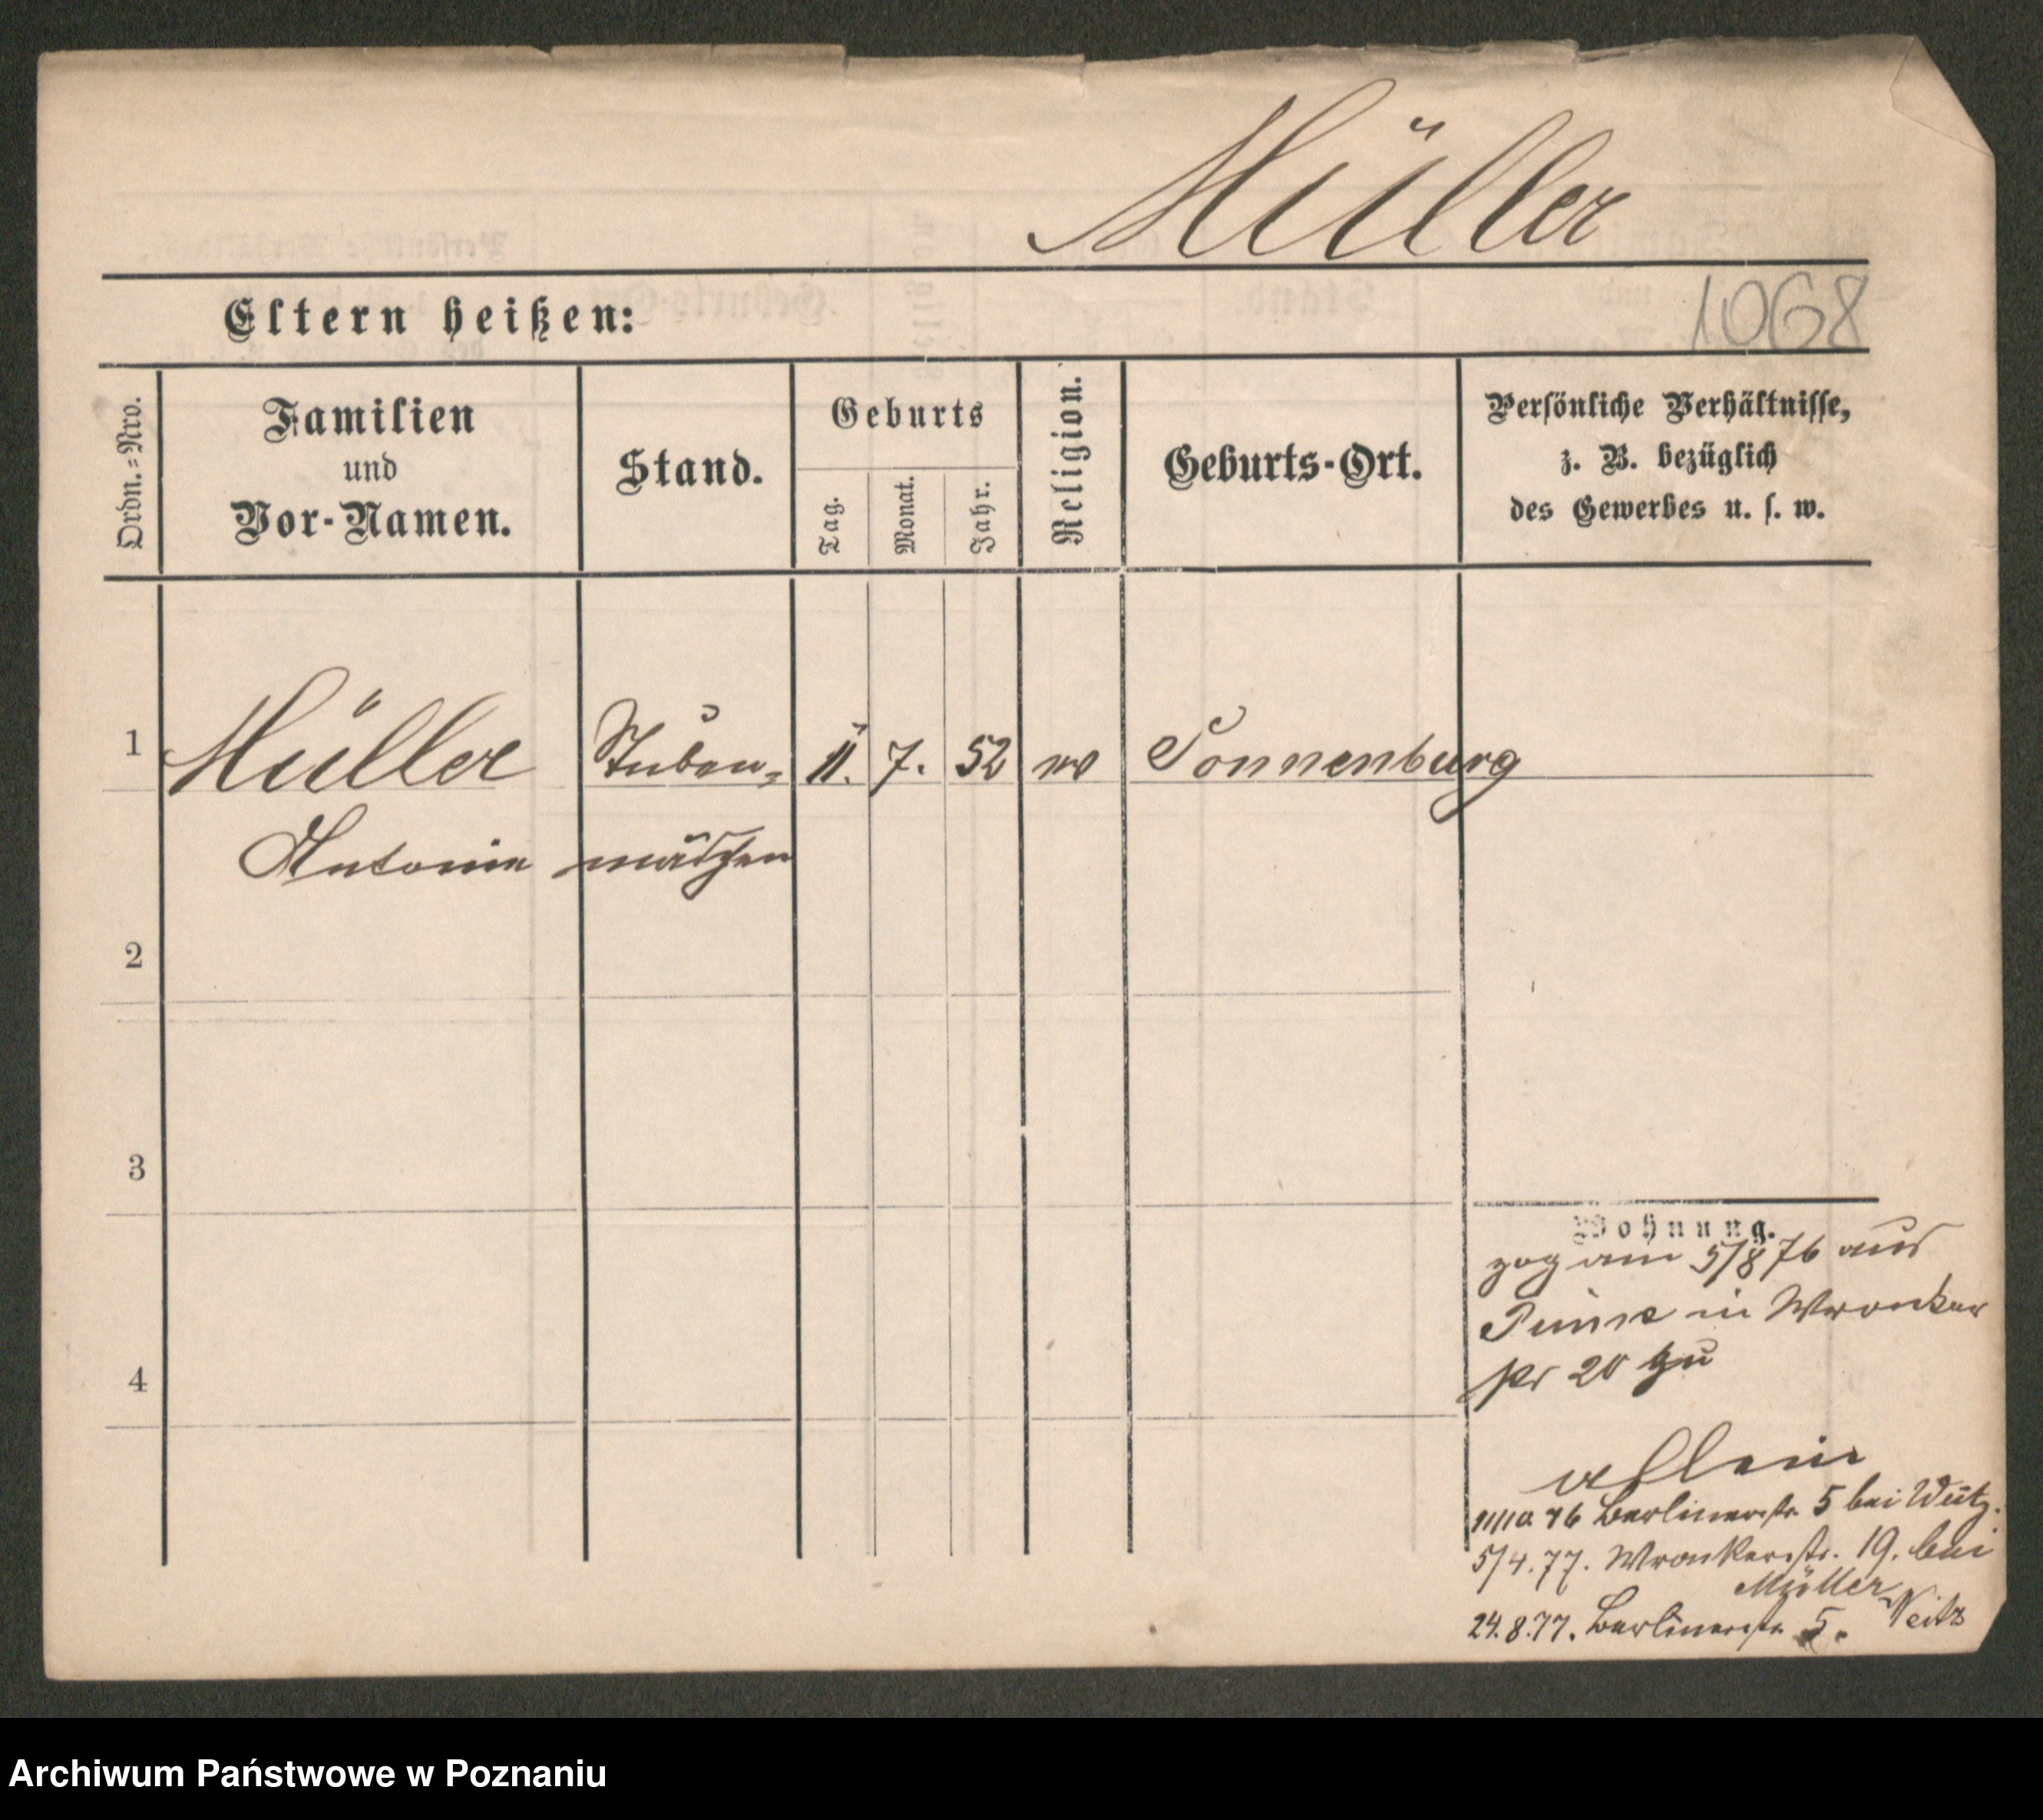 Müller
1068
Eltern heißen:
Ordn.=Nro.
Familien
und
Vor-Namen.
Stand.
Geburts
Tag.
Monat.
Jahr.
Religion.
Geburts-Ort.
Persönliche Verhältnisse,
z. B. bezüglich
des Gewerbes u. s. w.
1 Müller Stuben- 11. 7. 52 Sonnenburg
Antonie mädchen
2
3
4
Wohnung.
zog am 5/8 76 aus
Pinne in Wronker
str 20 zu
allein
11/10 76 Berlinerstr. 5 bei
5/4.77. Wronkerstr. 19. bei
Müller
24.8.77. Berlinerstr. 5.
Archiwum Państwowe w Poznaniu